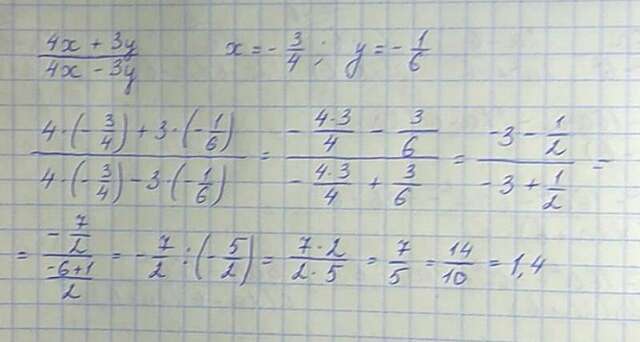 (4x + 3y)/(4x - 3y)   x = -3/4 ; y = -1/6
(4·(-3/4) + 3·(-1/6))/(4·(-3/4) - 3·(-1/6)) = (-(4·3)/4 - 3/6)/(-(4·3)/4 + 3/6) = (-3 - 1/2)/(-3 + 1/2) =
= (-7/2)/((-6+1)/2) = -7/2 : (-5/2) = (7·2)/(2·5) = 7/5 = 14/10 = 1,4